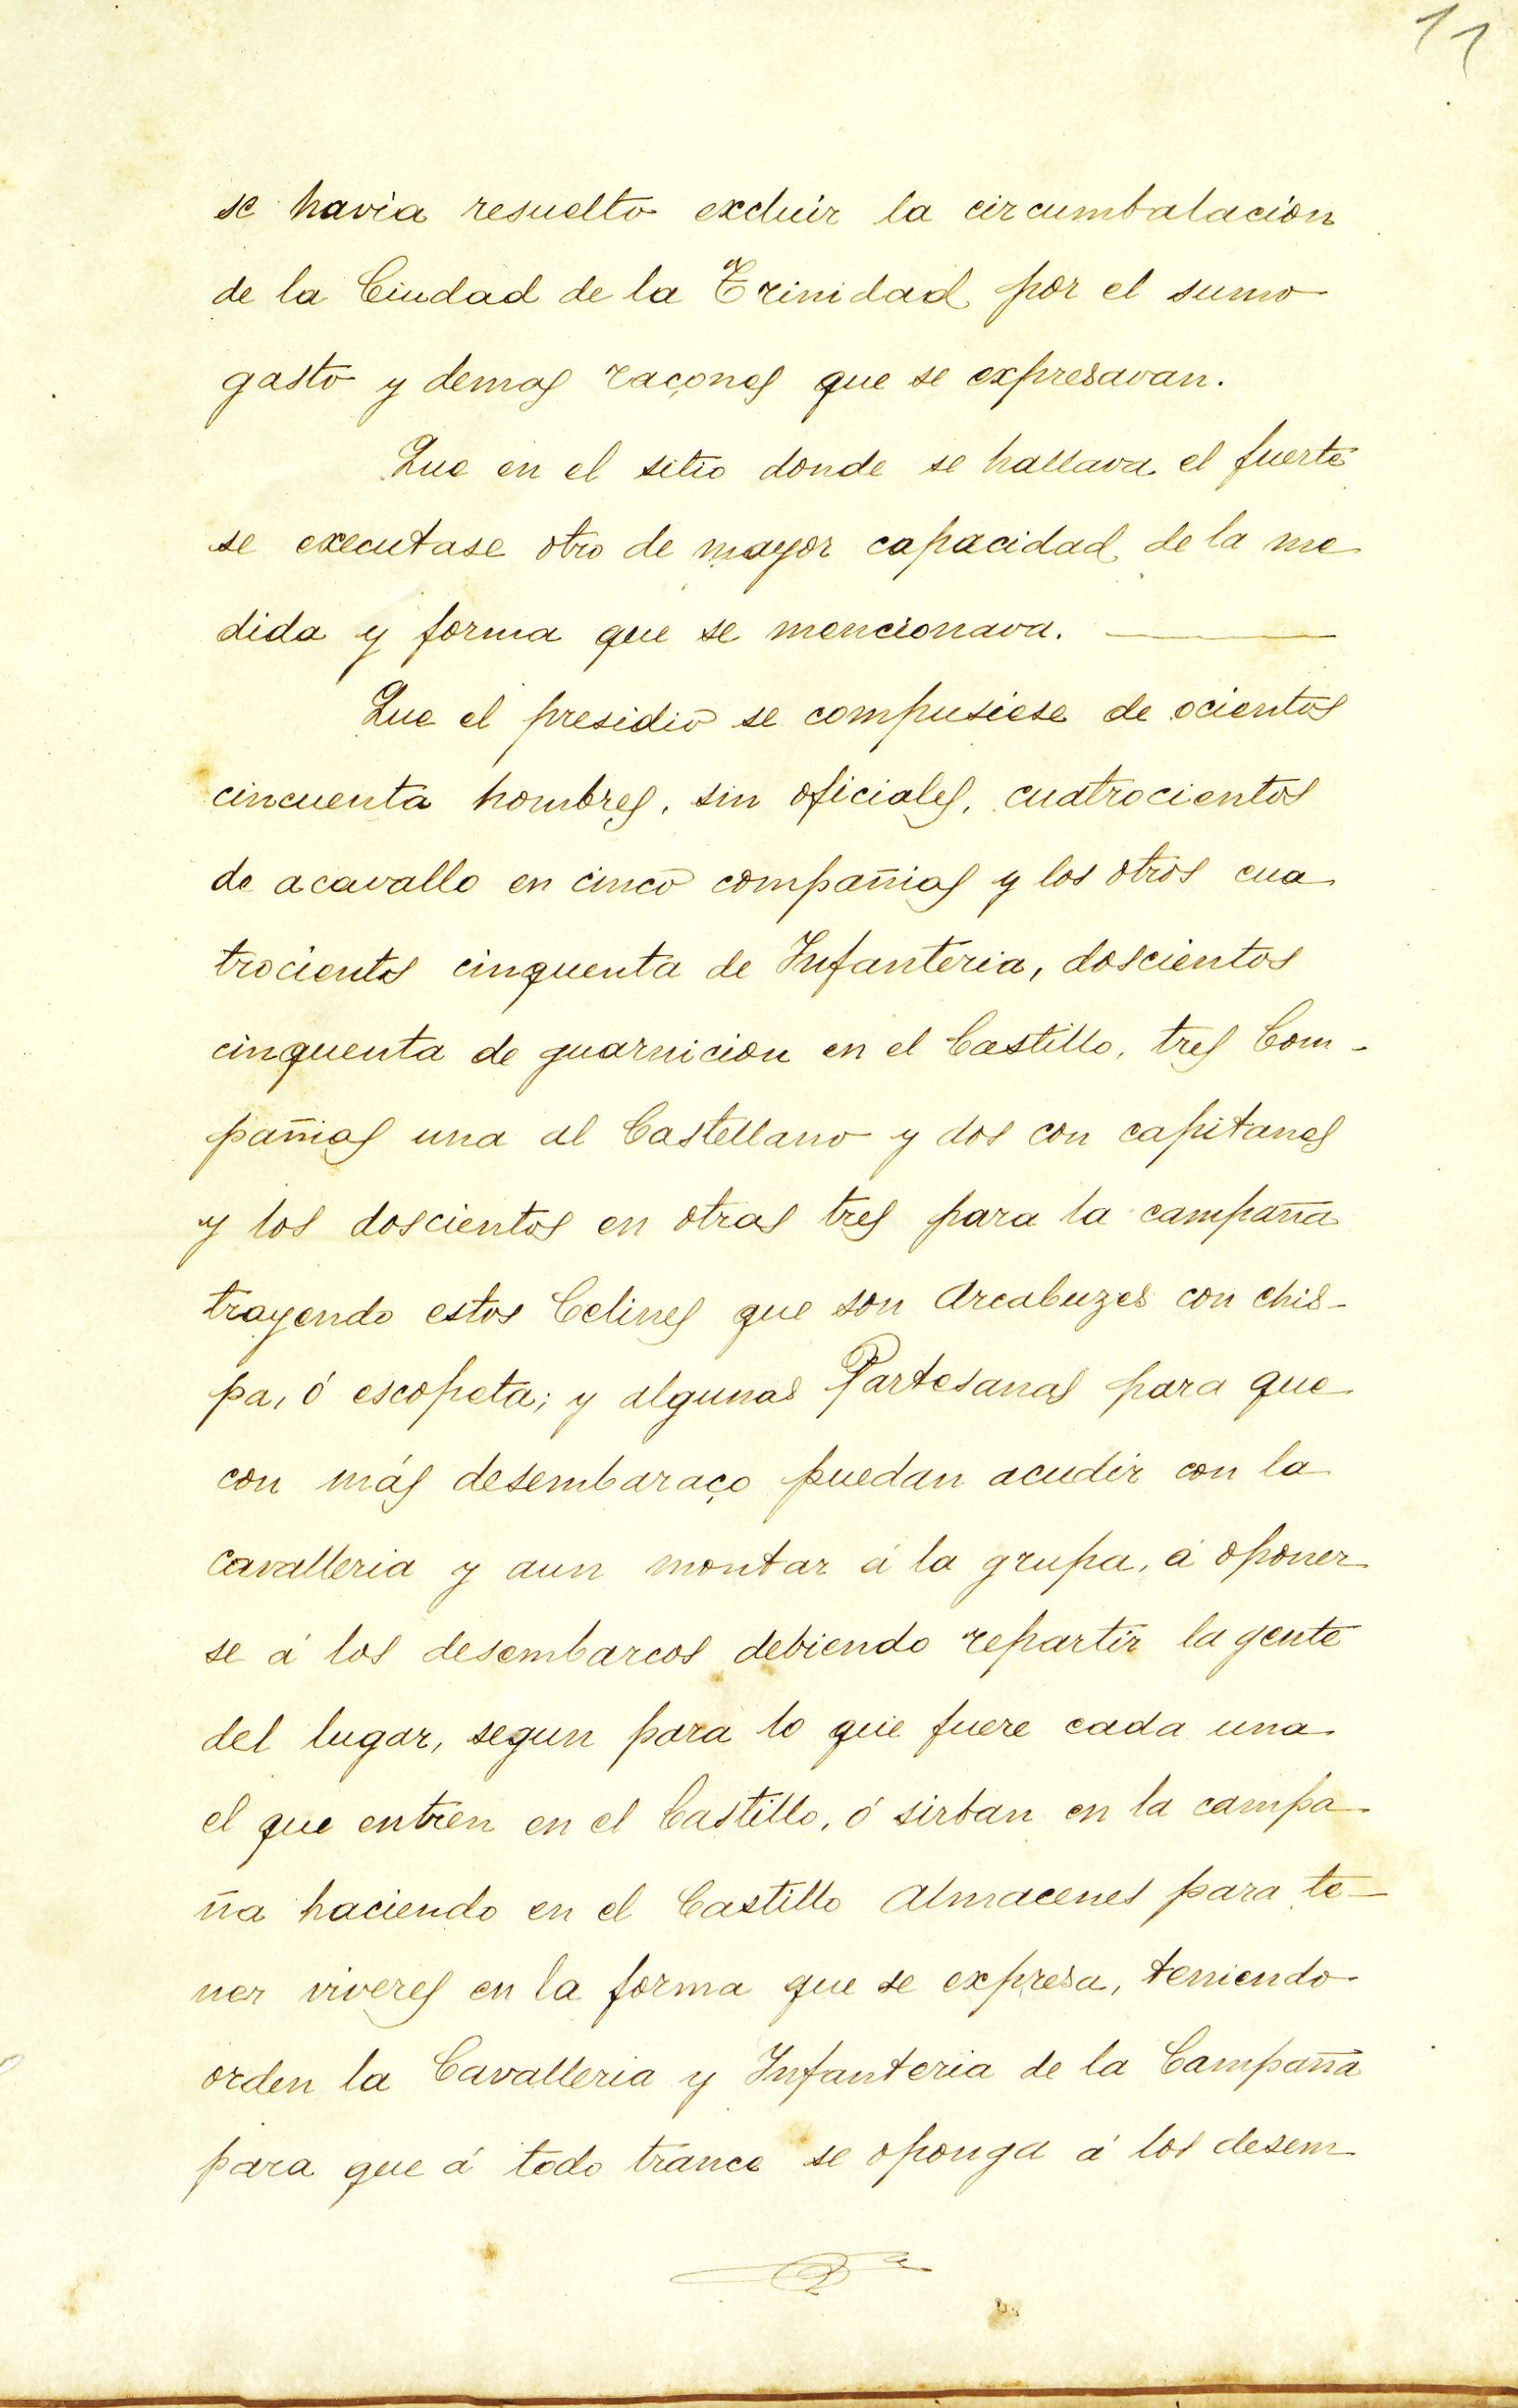 11
se havia resuelto excluir la circumbalacion
de la Ciudad de la Trinidad por el sumo
gasto y demas raçones que se expresavan.
Que en el sitio donde se hallava el fuerte
se executase otro de mayor capacidad de la me
dida y forma que se mencionava.
Que el presidio se compusiese de ocientos
cincuenta hombres, sin oficiales, cuatrocientos
de acavallo en cinco compañias y los otros cua
trocientos cinquenta de Infanteria, doscientos
cinquenta de guarnicion en el Castillo, tres Com-
pañias una al Castellano y dos con capitanes
y los doscientos en otras tres para la campaña
trayendo estos Celines que son Arcabuzes con chis-
pa, ó escopeta; y algunas Partesanas para que
con más desembaraço puedan acudir con la
cavalleria y aun montar á la grupa, á oponer
se á los desembarcos debiendo repartir la gente
del lugar, segun para lo que fuere cada una
el que entren en el Castillo, ó sirban en la campa
ña haciendo en el Castillo Almacenes para te-
ner viveres en la forma que se expresa, teniendo
orden la Cavalleria y Infanteria de la Campaña
para que á todo trance se oponga á los desem